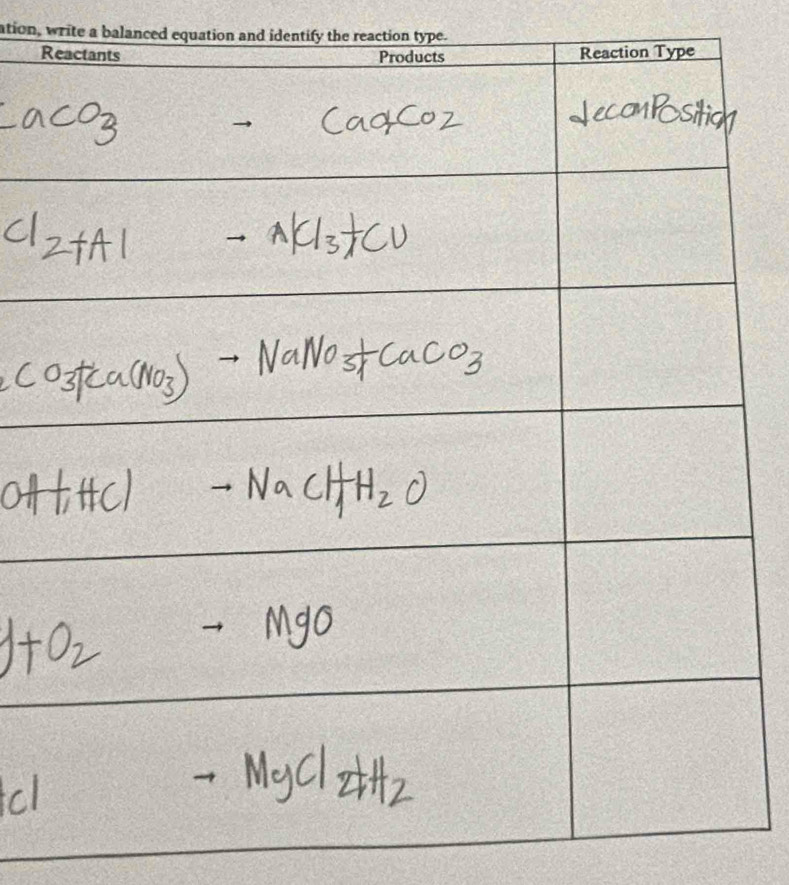 ation, write a balanced equation and identify the reaction type.
Reactants Products Reaction Type
CaCO3 → CaO+CO2 decomPosition
Cl2+Al → AlCl3+CU
2CO3+Ca(NO3) → NaNO3+CaCO3
OH+HCl → NaCl+H2O
g+O2 → MgO
HCl → MgCl2+H2